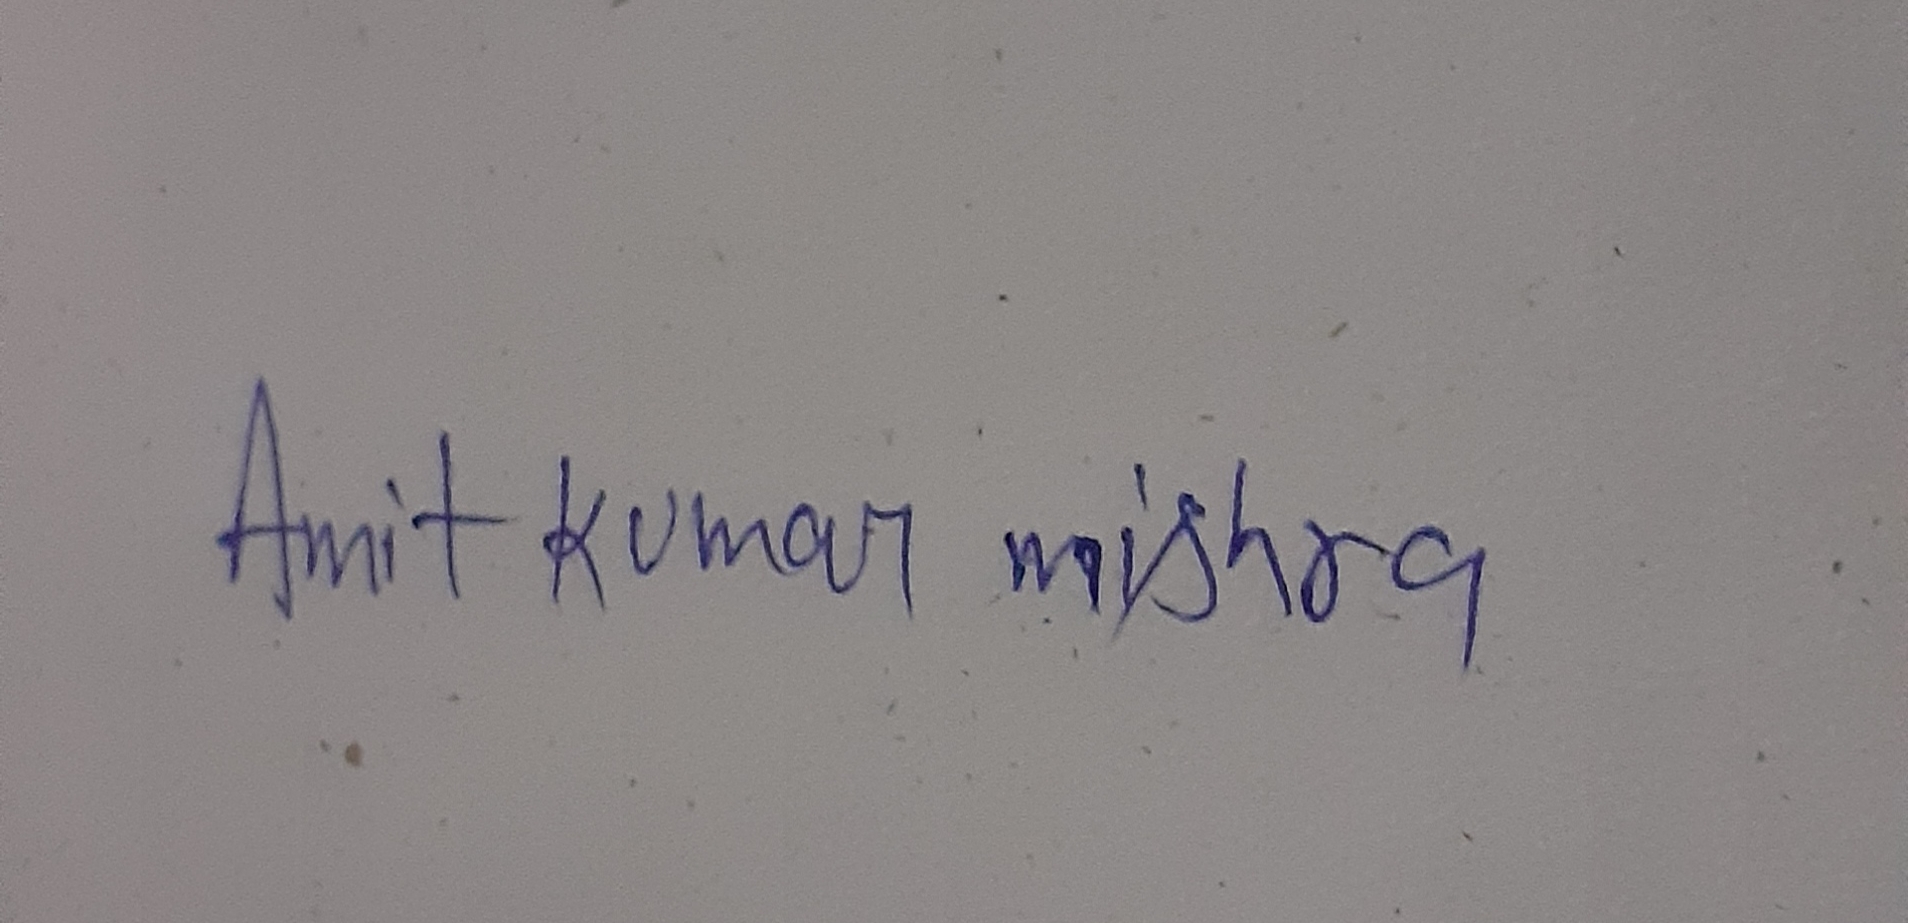 Amit kumar mishra